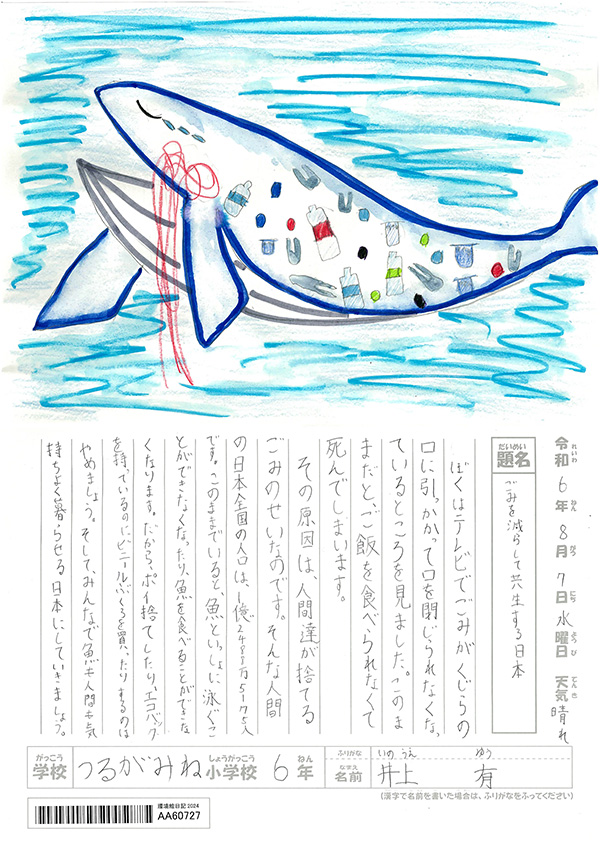 令和6年8月7日水曜日 天気 晴れ
れいわ ねん がつ にち ようび てんき
だいめい
題名
ごみを減らして共生する日本
ぼくはテレビでごみがくじらの
口に引っかかって口を閉じられなくなっ
ているところを見ました。このま
まだと、ご飯を食べられなくて
死んでしまいます。
その原因は、人間達が捨てる
ごみのせいなのです。そんな人間
の日本全国の人口は、1億2488万5175人
です。このままでいると、魚といっしょに泳ぐこ
とができなくなったり、魚を食べることができな
くなります。だから、ポイ捨てしたり、エコバック
を持っているのにビニールぶくろを買ったりするのは
やめましょう。そして、みんなで魚も人間も気
持ちよく暮らせる日本にしていきましょう。
がっこう しょうがっこう ねん ふりがな いのうえ ゆう
学校 つるがみね小学校 6年 なまえ 名前 井上 有
(漢字で名前を書いた場合は、ふりがなをふってください)
環境絵日記2024
AA60727